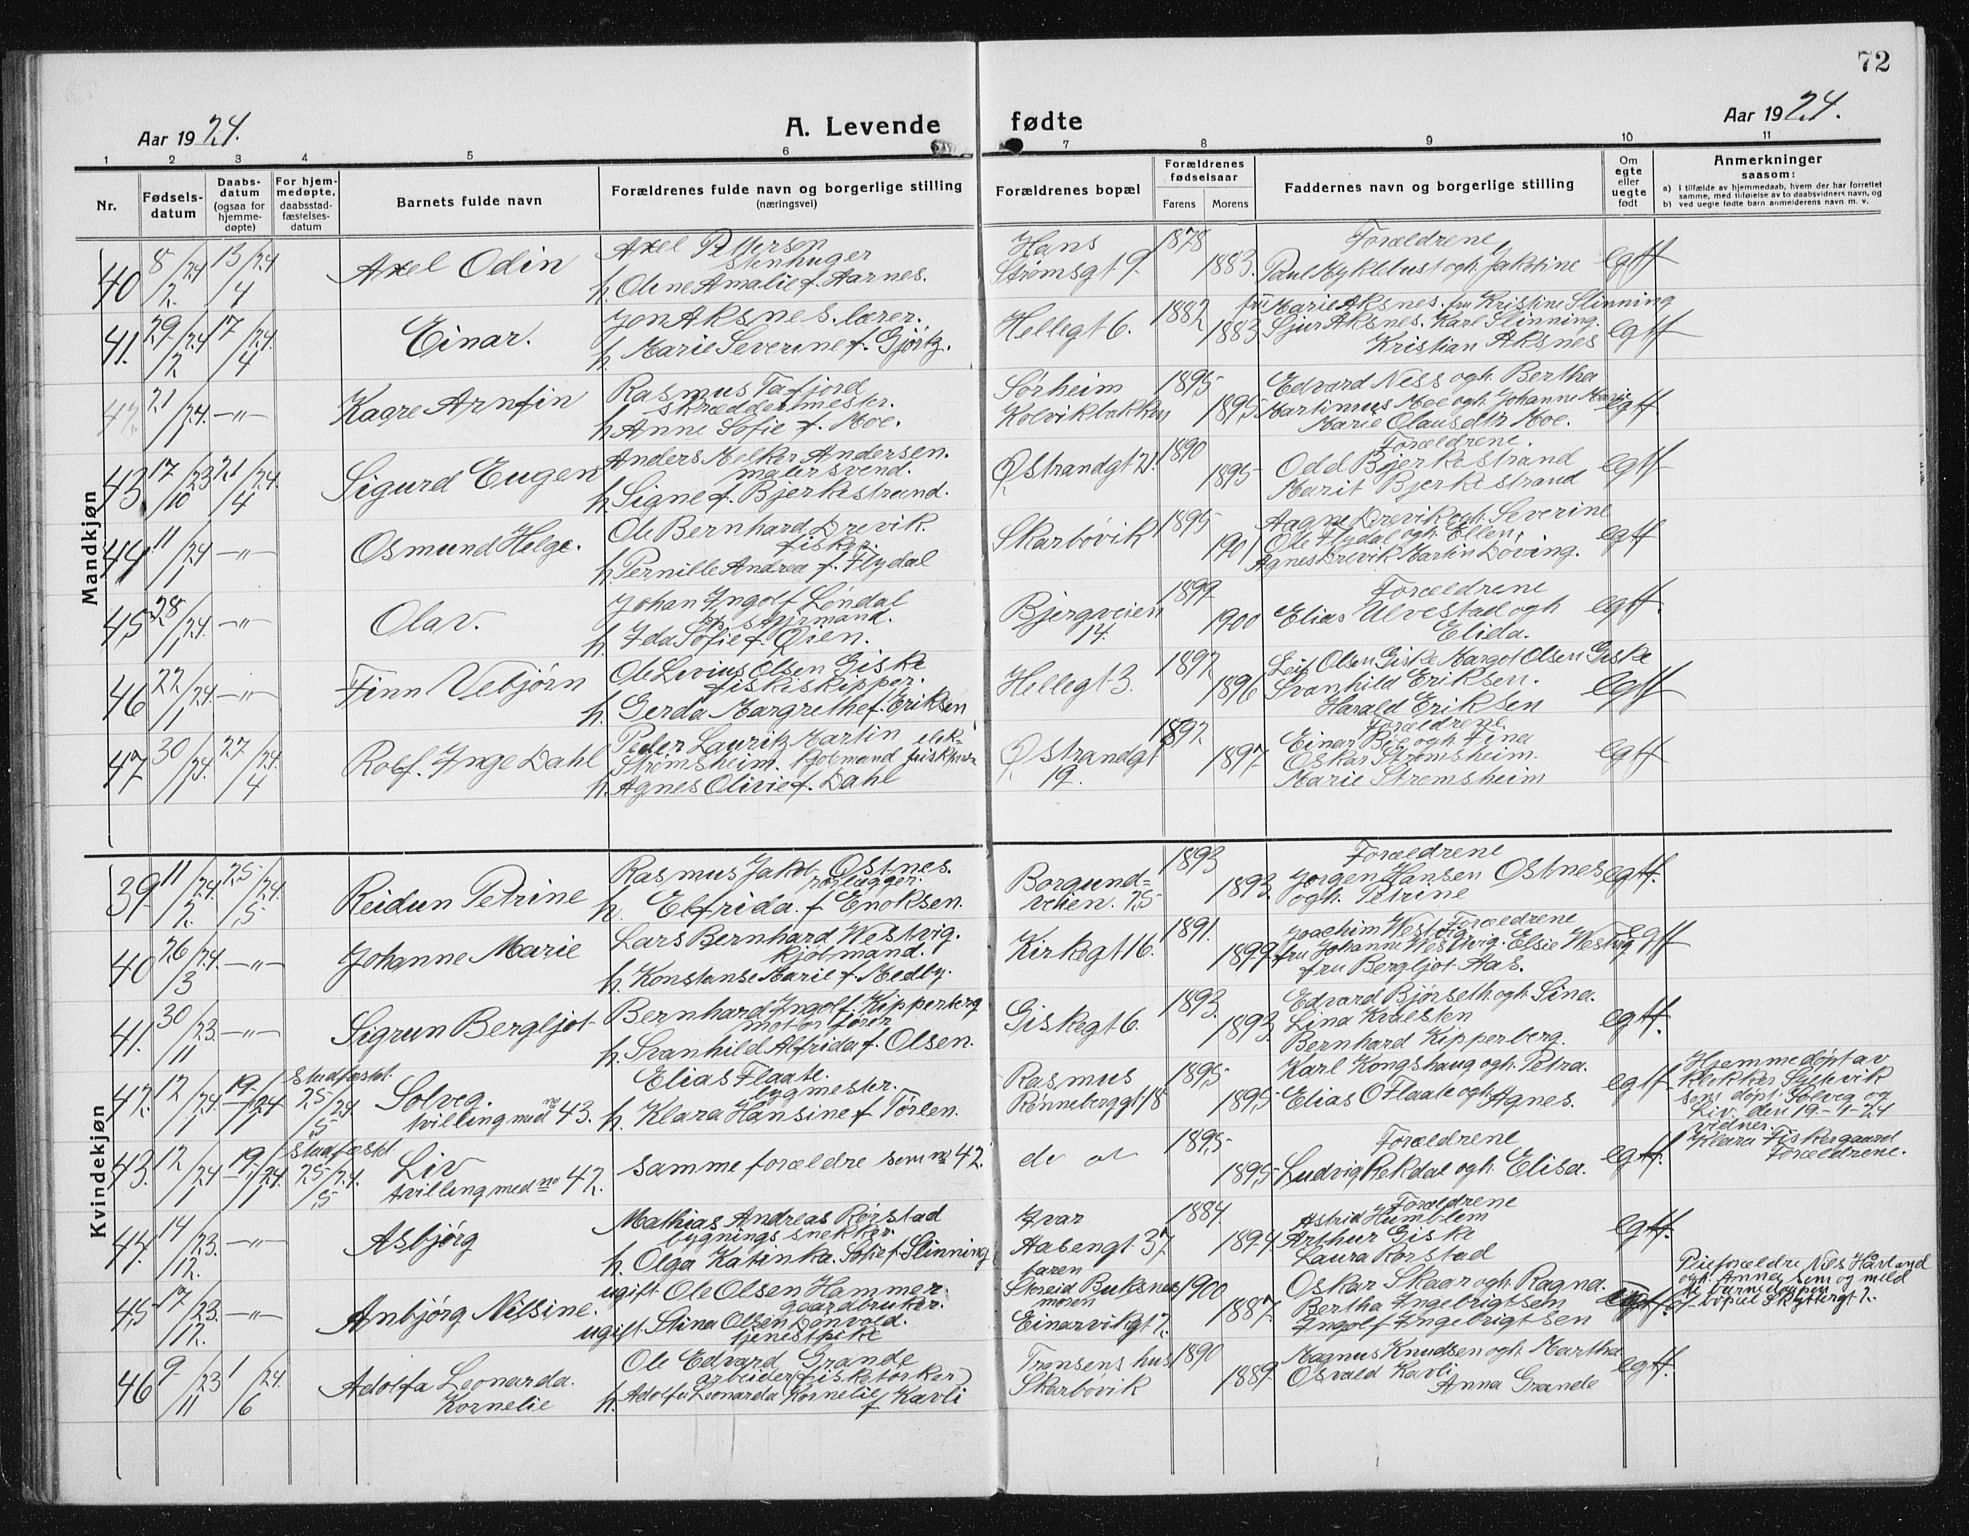 72
Aar 1924.
A. Levende fødte
Aar 1924.
1 2 3 4 5 6 7 8 9 10 11
Nr.
Fødsels-datum
Daabs-datum (ogsaa for hjemme-døpte)
For hjem-medøpte, daabsstad-fæstelses-datum
Barnets fulde navn
Forældrenes fulde navn og borgerlige stilling (næringsvei)
Forældrenes bopæl
Forældrenes fødselsaar
Farens Morens
Faddernes navn og borgerlige stilling
Om egte eller uegte født
Anmerkninger saasom:
a) i tilfælde av hjemmedaab, hvem der har forrettet samme, med tilføielse av to daabsvidners navn, og
b) ved uegte fødte barn anmelderens navn m. v.
Mandkjøn
40 8/2 24 13/4 24 Axel Odin
Axel Pettersen
stenhuger
h. Oline Amalie f. Aarnes.
Hans
Strømsgt 9.
1878
1883.
Forældrene
Paul Myklebust ogh. Jakobine
egtf
41. 29/2 24 17/4 24. Einar.
Jon Aksnes. lærer.
h. Marie Severine f. Gjørtz.
Hellegt 6.
1882
1883
fru Marie Aksnes. fru Kristine Slinning
Sjur Aksnes. Karl Slinning.
Kristian Aksnes
egtf
42. 21/1 24. —"— Kaare Arnfin
Rasmus Tafjord
skræddermester.
h. Anne Sofie f. Moe.
Sørheim
Kolvikbakken
1895
1895
Edvard Ness ogh. Bertha
Martinus Moe ogh. Johanne Marie
Marie Olausdtr Moe.
egtf
43. 17/10 23 21/4 24. Sigurd Eugen
Anders Melker Andersen.
malersvend.
h. Signe f. Bjerkestrand.
Østrandgt 21.
1890
1895
Forældrene.
Odd Bjerkestrand
Marit Bjerkestrand
egtf
44 11/1 24 —"— Osmund Helge.
Ole Bernhard Drevik
fisker.
h. Pernille Andrea f. Flydal
Skarbøvik
1895
1901
Aagne Drevik ogh. Severine
Ole Flydal ogh. Ellen,
Agnes Drevik Martin Døving.
egtf
45 28/1 24. —"— Olav.
Johan Ingolf Løndal
styrmand.
h. Ida Sofie f. Øien.
Bjergveien
14.
1899
1900
Forældrene
Elias Ulvestad ogh
Elida.
egtf.
46 22/1 24. —"— Finn Vebjørn
Ole Livius Olsen Giske
fiskeskipper.
h. Gerda Margrethe f. Eriksen
Hellegt 3.
1897.
1896
Leif Olsen Giske Margot Olsen Giske
Svanhild Eriksen.
Harald Eriksen
egtf
47. 30/1 24. 27/4 24. Rolf. Inge Dahl
Peder Lauritz Martin
Strømsheim. kjøbmand
h. Agnes Olivie f. Dahl
Østrandgt
19.
1892.
1897
Forældrene.
Einar Bie ogh. Fina
Oskar Strømsheim.
Marie Strømsheim
egtf
Kvindekjøn
39 11/2 24. 25/5 24. Reidun Petrine
Rasmus Jakob Ostnes.
h. Elfrida. f Enoksen.
Borgund-
veien. 25
1893
1893.
Forældrene
Jørgen Hansen Ostnes
ogh. Petrine
egtf.
40 26/3 24. —"— Johanne Marie
Lars Bernhard Westvig.
kjøbmand.
h. Konstanse Marie f. Medby.
Kirkegt 16.
1891.
1899
Forældrene
Joachim Westvig
fru Johanne Westvig. Elsie Westvig
fru Bergljot Aas.
Egtf
41. 30/11 23. —"— Sigrun Bergljot
Bernhard Ingolf Kipperberg
motorfører
h. Svanhild Alfrida f. Olsen.
Giskegt 6.
1893.
1893.
Edvard Bjørseth ogh. Sina.
Lina Kvalsten
Bernhard Kipperberg.
egtf.
42. 12/1 24. 19/1 24 Stadfæstet 25/5 24. Solveg.
tvilling med no 43.
Elias Flaate.
bygmester.
h. Klara Hansine f Tørlen.
Rasmus
Rønneberggt 18
1895
1895
Karl Kongshaug ogh. Petra.
Elias O Flaate ogh. Agnes.
egtf
Hjemmedøpt av
klokker Sætevik
som døpt. Solveg og
Liv. den 19-1-24
vidner.
Klara Fiskergaard
Forældrene.
43. 12/1 24 19/1 24 Stadfæstet 25/5 24. Liv
tvilling med no 42.
samme forældre som no 42.
do at
1895
1895
Forældrene
Ludvig Rekdal ogh. Elisa.
egtf.
44. 14/12. 23. —"— Asbjørg
Mathias Andreas Rørstad
bygningssnekker
h. Olga Katinka. Sofie f. Slinning
Ivar
Aasengt 37
1884.
1894
Forældrene
Astrid Humblem
Arthur Giske
Laura Rørstad
egtf.
45 17/12. 23. —"— Anbjørg Nilsine.
ugift. Ole Olsen Hammer.
gaardbruker.
ugift. Stina Olsen Lønvold.
tjenestpike
faren
Storeid Buksnes
moren
Einarvikgt 7.
1900
1887.
Oskar Skaar ogh. Ragna.
Bertha Ingebrigtsen
Ingolf Ingebrigtsen
Pleieforældre Nils Håvland
ogh. Anne, som og meld
te barnedaapen
bopæl Skyttergt 2.
46 9/11 23 1/6 24. Adolfa Leonarda.
Kornelie
Ole Edvard Grande
arbeider (fisketørker)
h. Adolfa Leonarda Kornelie f Kavli
Transens hus
Skarbøvik
1890
1889
Magnus Knudsen ogh. Martha
Osvald Kavli
Anna Grande
egtf.